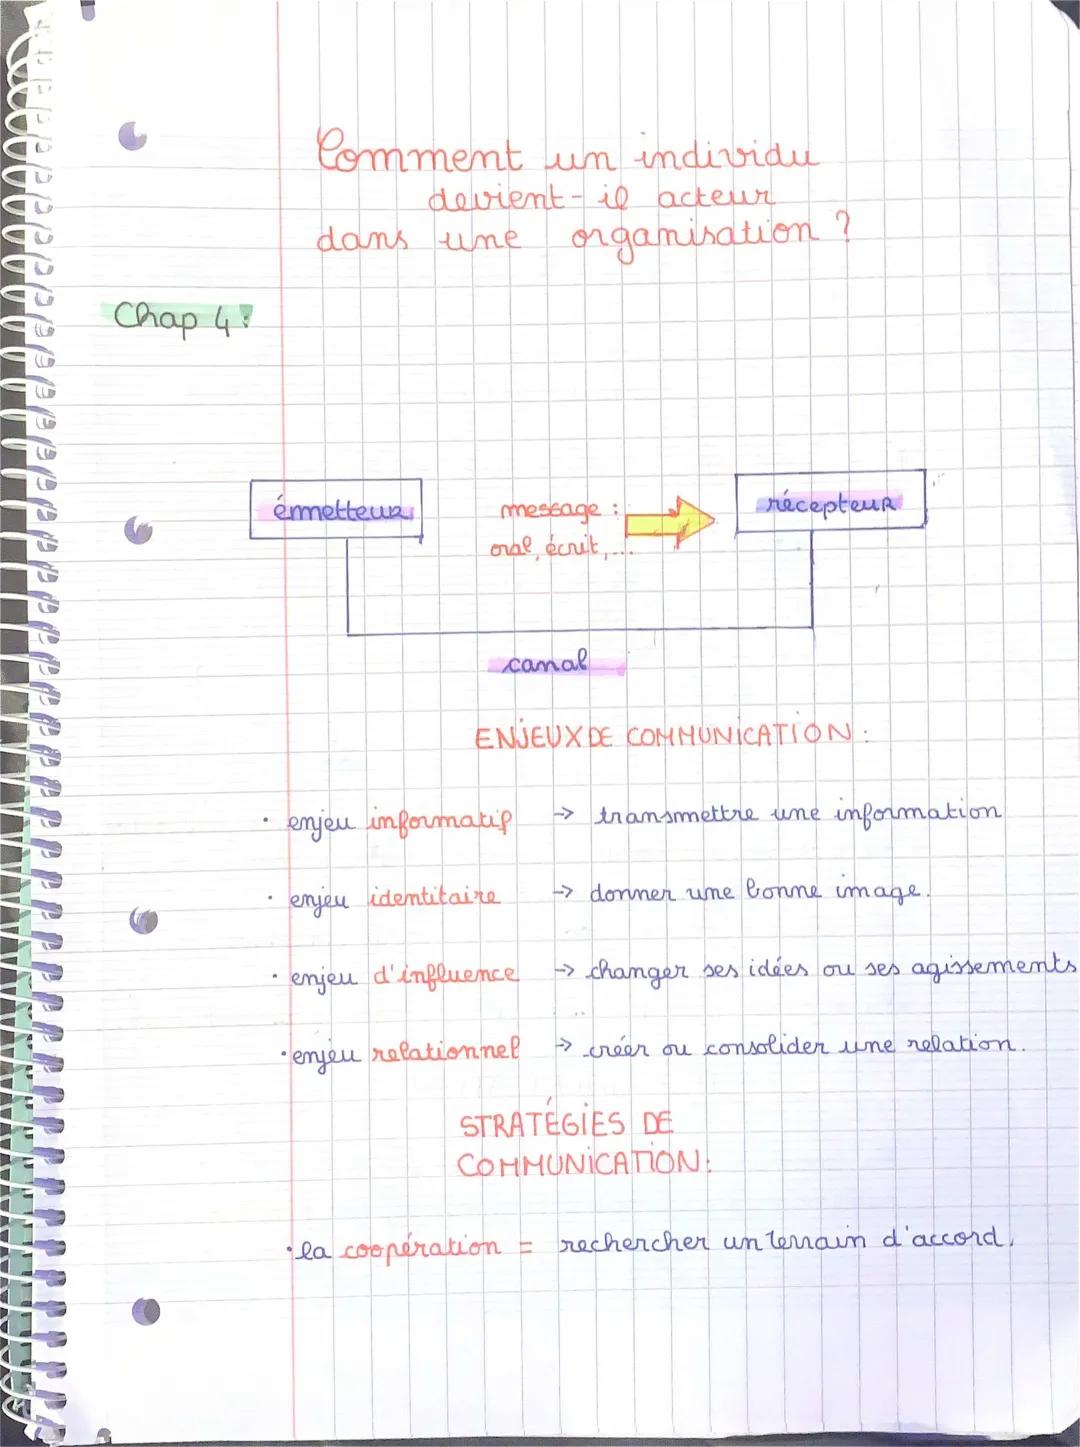 Comment un individu
devient-il acteur
dans une organisation ?
Chap 4:
émetteur
message :
oral, écrit,...
récepteur
canal
ENJEUX DE COMMUNICATION :
• enjeu informatif → transmettre une information
• enjeu identitaire → donner une bonne image.
• enjeu d'influence → changer ses idées ou ses agissements
• enjeu relationnel → créer ou consolider une relation.
STRATÉGIES DE
COMMUNICATION:
• la coopération = rechercher un terrain d'accord.